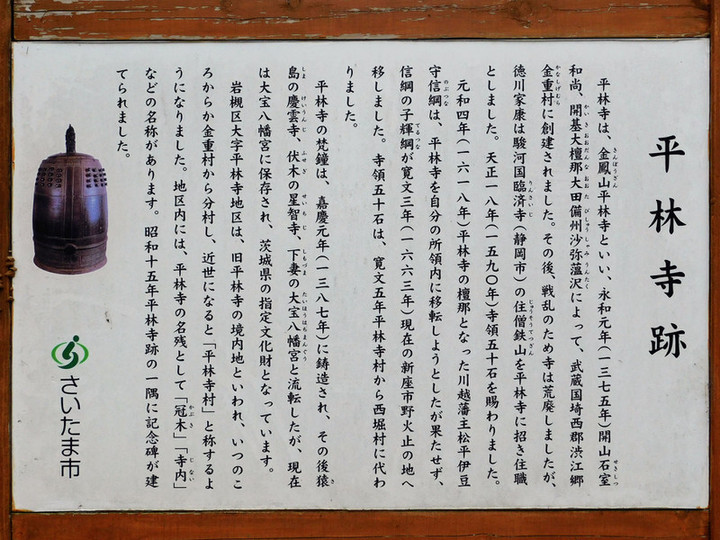 平林寺跡
平林寺は、金鳳山平林寺といい、永和元年(一三七五年)開山石室
和尚、開基大檀那大田備州沙弥薀沢によって、武蔵国埼西郡渋江郷
金重村に創建されました。その後、戦乱のため寺は荒廃しましたが、
徳川家康は駿河国臨済寺(静岡市)の住僧鉄山を平林寺に招き住職
としました。天正一八年(一五九〇年)寺領五十石を賜わりました。
元和四年(一六一八年)平林寺の檀那となった川越藩主松平伊豆
守信綱は、平林寺を自分の所領内に移転しようとしたが果たせず、
信綱の子輝綱が寛文三年(一六六三年)現在の新座市野火止の地へ
移しました。寺領五十石は、寛文五年平林寺村から西堀村に代わ
りました。
平林寺の梵鐘は、嘉慶元年(一三八七年)に鋳造され、その後猿
島の慶雲寺、伏木の星智寺、下妻の大宝八幡宮と流転したが、現在
は大宝八幡宮に保存され、茨城県の指定文化財となっています。
岩槻区大字平林寺地区は、旧平林寺の境内地といわれ、いつのこ
ろからか金重村から分村し、近世になると「平林寺村」と称するよ
うになりました。地区内には、平林寺の名残として「冠木」「寺内」
などの名称があります。昭和十五年平林寺跡の一隅に記念碑が建
てられました。
さいたま市